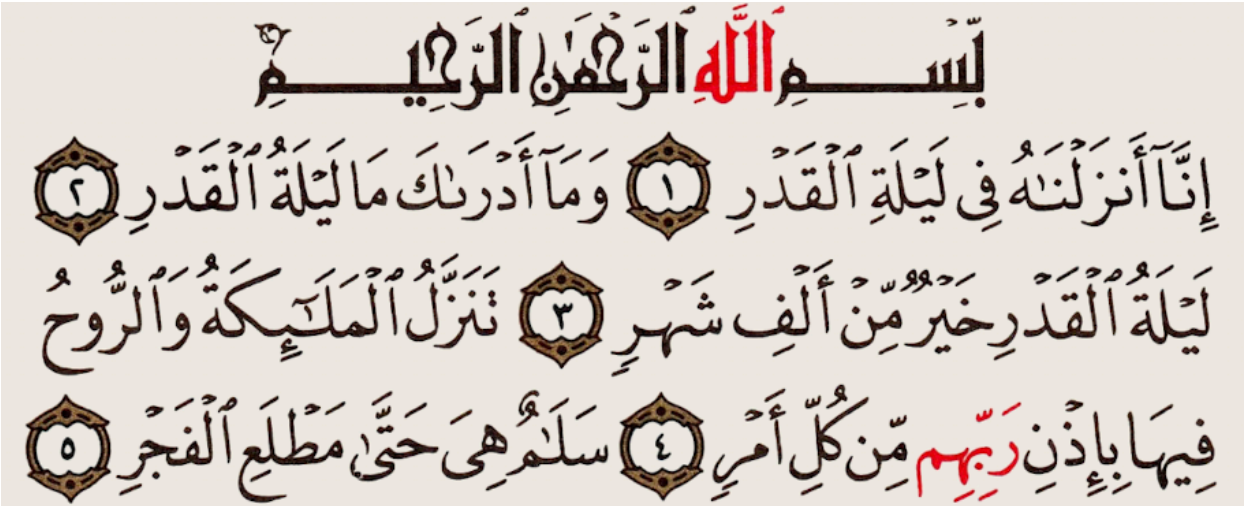 بِّسۡمِ ٱللَّهِ ٱلرَّحۡمَٰنِ ٱلرَّحِيمِ
إِنَّآ أَنزَلۡنَٰهُ فِى لَيۡلَةِ ٱلۡقَدۡرِ ١ وَمَآ أَدۡرَىٰكَ مَا لَيۡلَةُ ٱلۡقَدۡرِ ٢
لَيۡلَةُ ٱلۡقَدۡرِ خَيۡرٌ مِّنۡ أَلۡفِ شَهۡرٍ ٣ تَنَزَّلُ ٱلۡمَلَٰٓئِكَةُ وَٱلرُّوحُ
فِيهَا بِإِذۡنِ رَبِّهِم مِّن كُلِّ أَمۡرٍ ٤ سَلَٰمٌ هِىَ حَتَّىٰ مَطۡلَعِ ٱلۡفَجۡرِ ٥